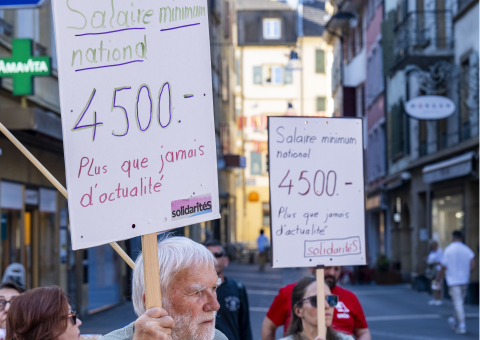 AMAVITA
Salaire minimum
national
4500.-
Plus que jamais
d'actualité
solidaritéS
Salaire minimum
national
4500.-
Plus que jamais
d'actualité
solidaritéS